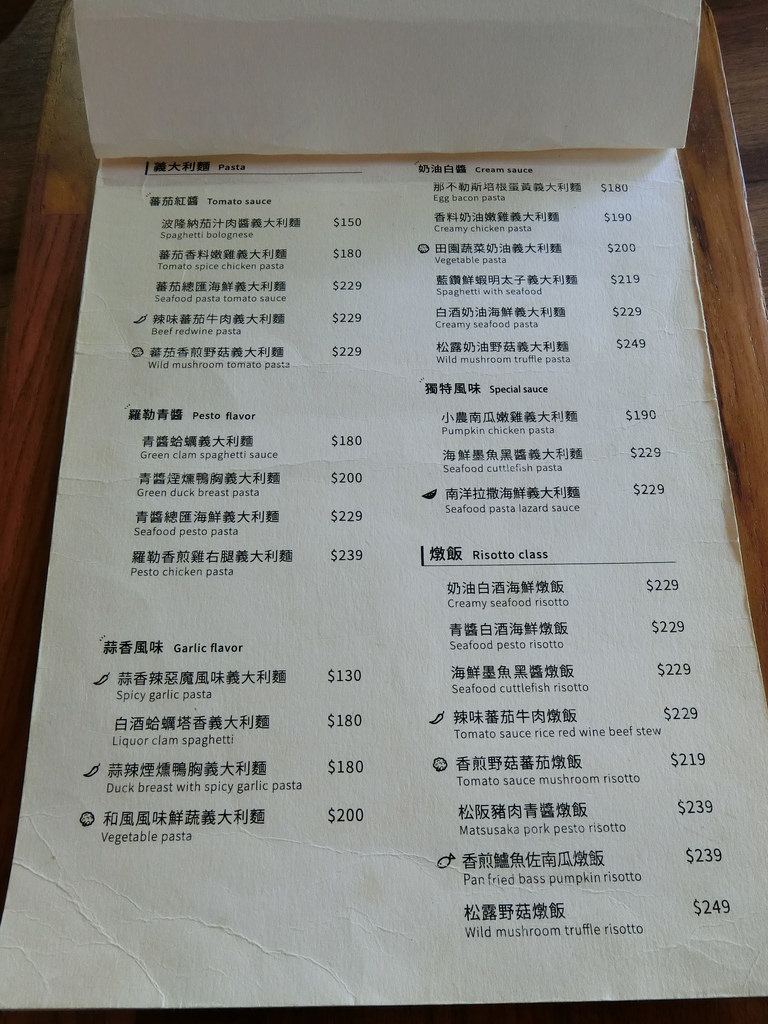 義大利麵 Pasta
蕃茄紅醬 Tomato sauce
波隆納茄汁肉醬義大利麵 $150
Spaghetti bolognese
蕃茄香料嫩雞義大利麵 $180
Tomato spice chicken pasta
蕃茄總匯海鮮義大利麵 $229
Seafood pasta tomato sauce
辣味蕃茄牛肉義大利麵 $229
Beef redwine pasta
蕃茄香煎野菇義大利麵 $229
Wild mushroom tomato pasta
羅勒青醬 Pesto flavor
青醬蛤蠣義大利麵 $180
Green clam spaghetti sauce
青醬煙燻鴨胸義大利麵 $200
Green duck breast pasta
青醬總匯海鮮義大利麵 $229
Seafood pesto pasta
羅勒香煎雞右腿義大利麵 $239
Pesto chicken pasta
蒜香風味 Garlic flavor
蒜香辣惡魔風味義大利麵 $130
Spicy garlic pasta
白酒蛤蠣塔香義大利麵 $180
Liquor clam spaghetti
蒜辣煙燻鴨胸義大利麵 $180
Duck breast with spicy garlic pasta
和風風味鮮蔬義大利麵 $200
Vegetable pasta
奶油白醬 Cream sauce
那不勒斯培根蛋黃義大利麵 $180
Egg bacon pasta
香料奶油嫩雞義大利麵 $190
Creamy chicken pasta
田園蔬菜奶油義大利麵 $200
Vegetable pasta
藍鑽鮮蝦明太子義大利麵 $219
Spaghetti with seafood
白酒奶油海鮮義大利麵 $229
Creamy seafood pasta
松露奶油野菇義大利麵 $249
Wild mushroom truffle pasta
獨特風味 Special sauce
小農南瓜嫩雞義大利麵 $190
Pumpkin chicken pasta
海鮮墨魚黑醬義大利麵 $229
Seafood cuttlefish pasta
南洋拉撒海鮮義大利麵 $229
Seafood pasta lazard sauce
燉飯 Risotto class
奶油白酒海鮮燉飯 $229
Creamy seafood risotto
青醬白酒海鮮燉飯 $229
Seafood pesto risotto
海鮮墨魚黑醬燉飯 $229
Seafood cuttlefish risotto
辣味蕃茄牛肉燉飯 $229
Tomato sauce rice red wine beef stew
香煎野菇蕃茄燉飯 $219
Tomato sauce mushroom risotto
松阪豬肉青醬燉飯 $239
Matsusaka pork pesto risotto
香煎鱸魚佐南瓜燉飯 $239
Pan fried bass pumpkin risotto
松露野菇燉飯 $249
Wild mushroom truffle risotto